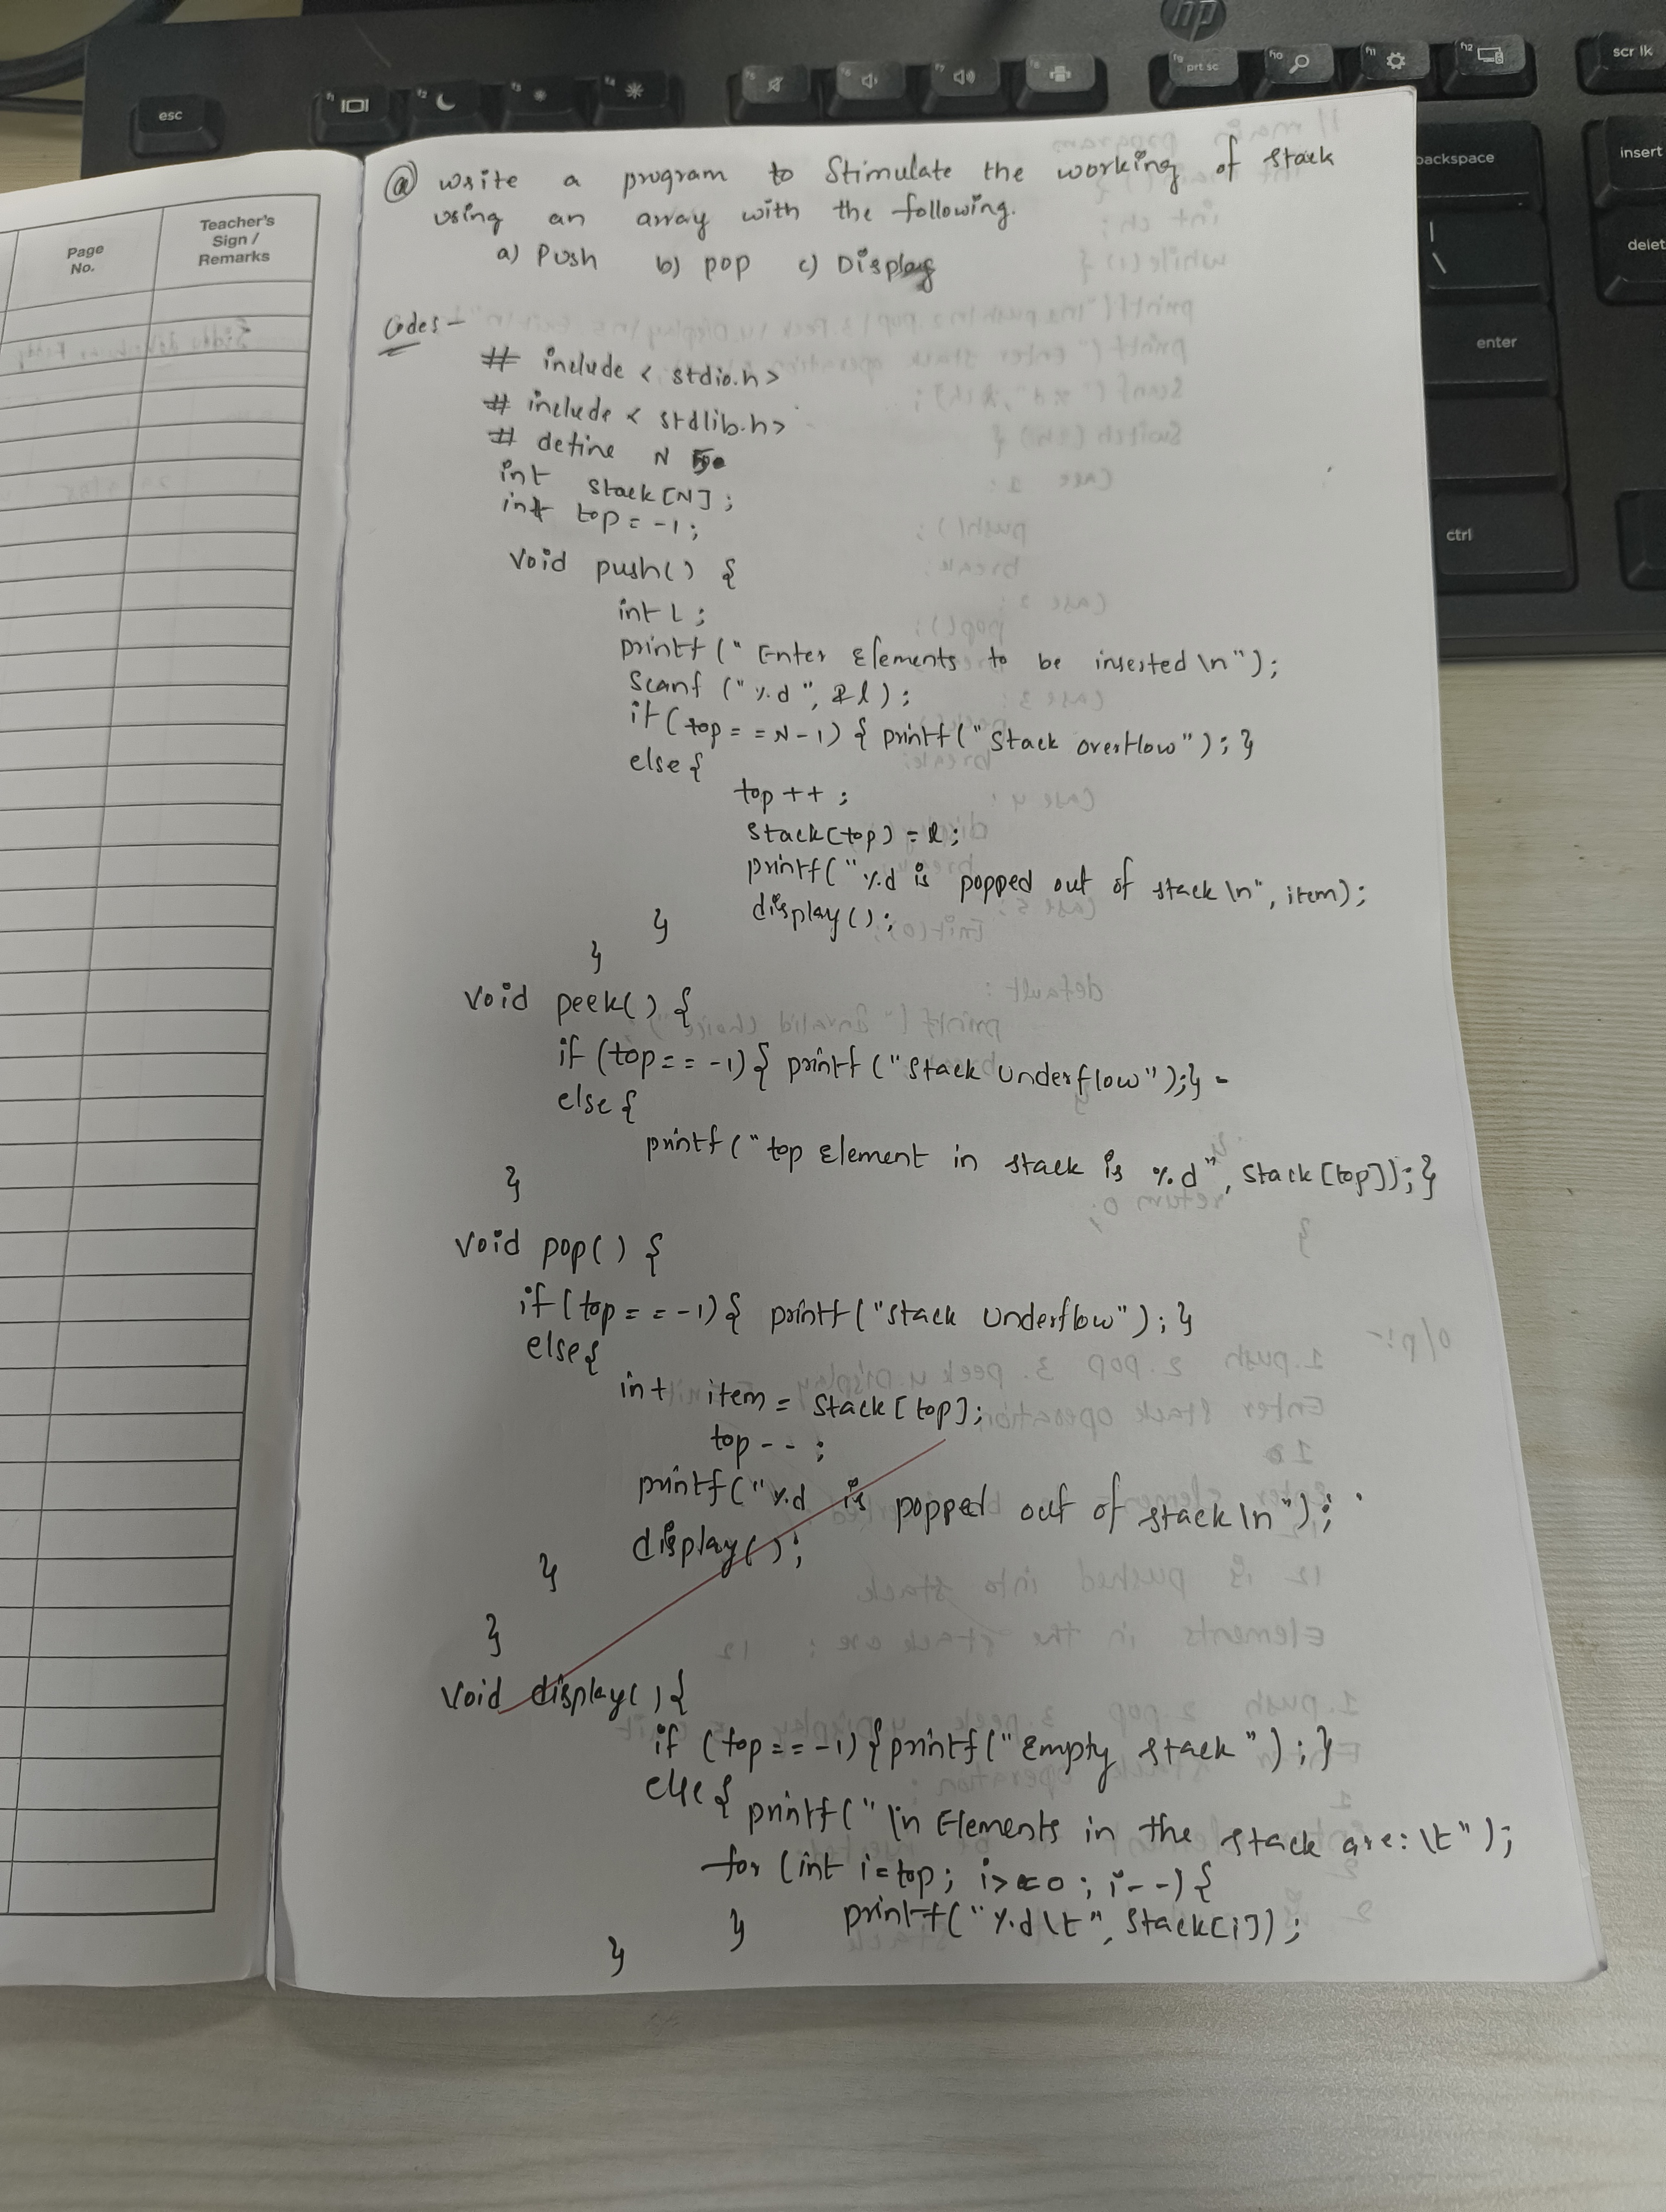 hp
esc
f1
f2
f3
f4
f5
f6
f7
f8
f9 prt sc
f10
f11
f12
scr lk
backspace
insert
enter
delet
ctrl
Page
No.
Teacher's
Sign /
Remarks
@ write a program to Stimulate the working of stack
using an array with the following.
a) Push b) pop c) Display
Codes -
# include < stdio.h>
# include < stdlib.h>
# define N 50
int stack [N] ;
int top = -1 ;
void push() {
int l ;
printf (" Enter Elements to be inserted \n");
Scanf ("%d", &l) ;
if (top = = N-1) { printf (" Stack overflow") ; }
else {
top ++ ;
Stack[top] = l ;
printf(" %d is popped out of stack \n", item) ;
display() ;
}
}
void peek() {
if (top = = -1) { printf ("Stack Underflow") ; }
else {
printf ("top Element in stack is %d", Stack [top]) ; }
}
void pop() {
if (top = = -1) { printf ("stack Underflow") ; }
else {
int item = Stack [top] ;
top -- ;
printf(" %d is popped out of stack \n") ;
display() ;
}
}
void display() {
if (top = = -1) { printf (" Empty stack ") ; }
else { printf (" \n Elements in the stack are: \t") ;
for (int i = top ; i > = 0 ; i --) {
printf(" %d \t", Stack [i]) ;
}
}